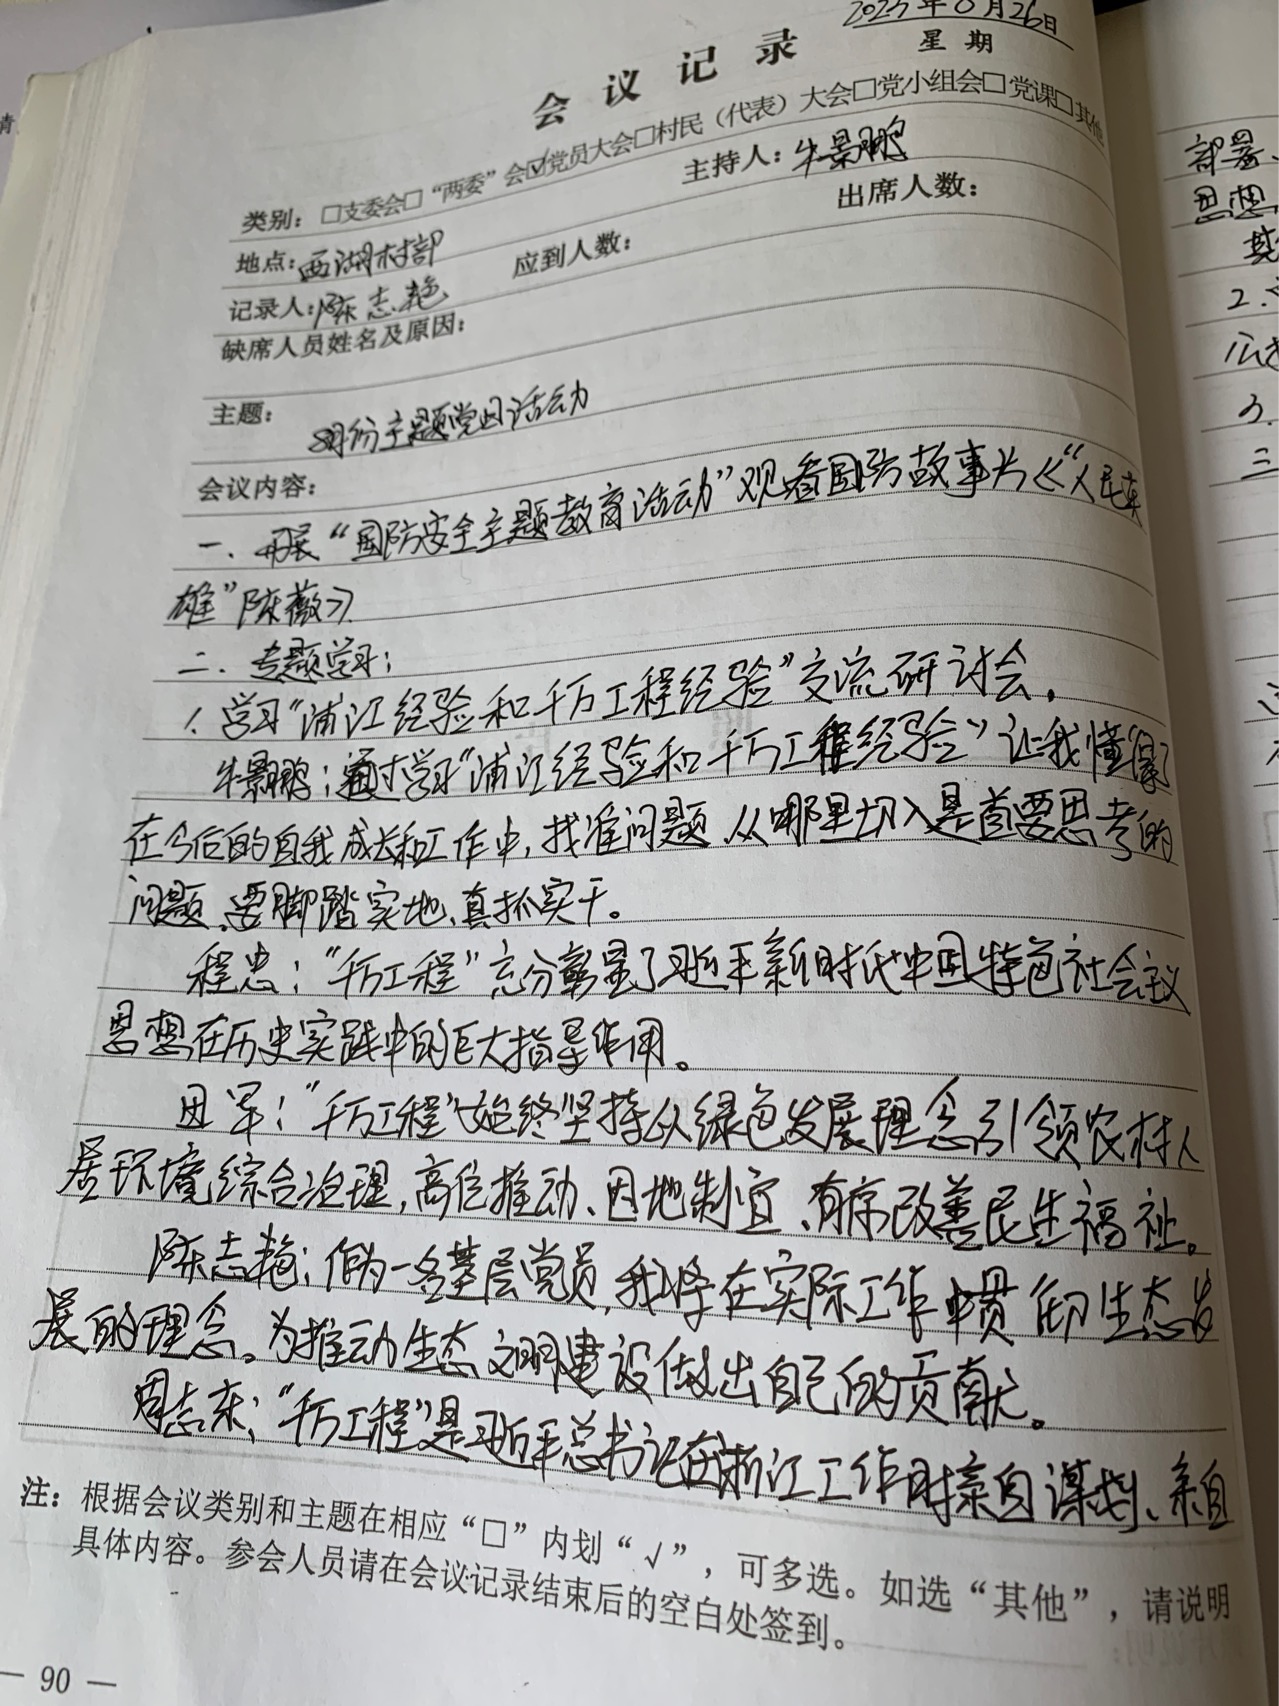 2023年8月26日
会议记录
星期
类别：□支委会□“两委”会☑党员大会□村民（代表）大会□党小组会□党课□其他
地点：西湖村部 主持人：牛景鹏
记录人：陈志艳 应到人数： 出席人数：
缺席人员姓名及原因：
主题：
8月份主题党日活动
会议内容：
一、开展“国防安全主题教育活动”观看国防故事片《“人民英
雄”陈薇》
二、专题学习：
1、学习“浦江经验和千万工程经验”交流研讨会。
牛景鹏：通过学习“浦江经验和千万工程经验”让我懂得了
在今后的自我成长和工作中，找准问题、从哪里切入是首要思考的
问题、要脚踏实地、真抓实干。
程忠：“千万工程”充分彰显了习近平新时代中国特色社会主义
思想在历史实践中的巨大指导作用。
田军：“千万工程”始终坚持以绿色发展理念引领农村人
居环境综合治理，高位推动、因地制宜、有序改善民生福祉。
陈志艳：作为一名基层党员，我将在实际工作中贯彻生态发
展的理念。为推动生态文明建设做出自己的贡献。
周志东：“千万工程”是习近平总书记在浙江工作时亲自谋划、亲自
注：根据会议类别和主题在相应“□”内划“√”，可多选。如选“其他”，请说明
具体内容。参会人员请在会议记录结束后的空白处签到。
— 90 —
部署、
思想
2.
3.
三